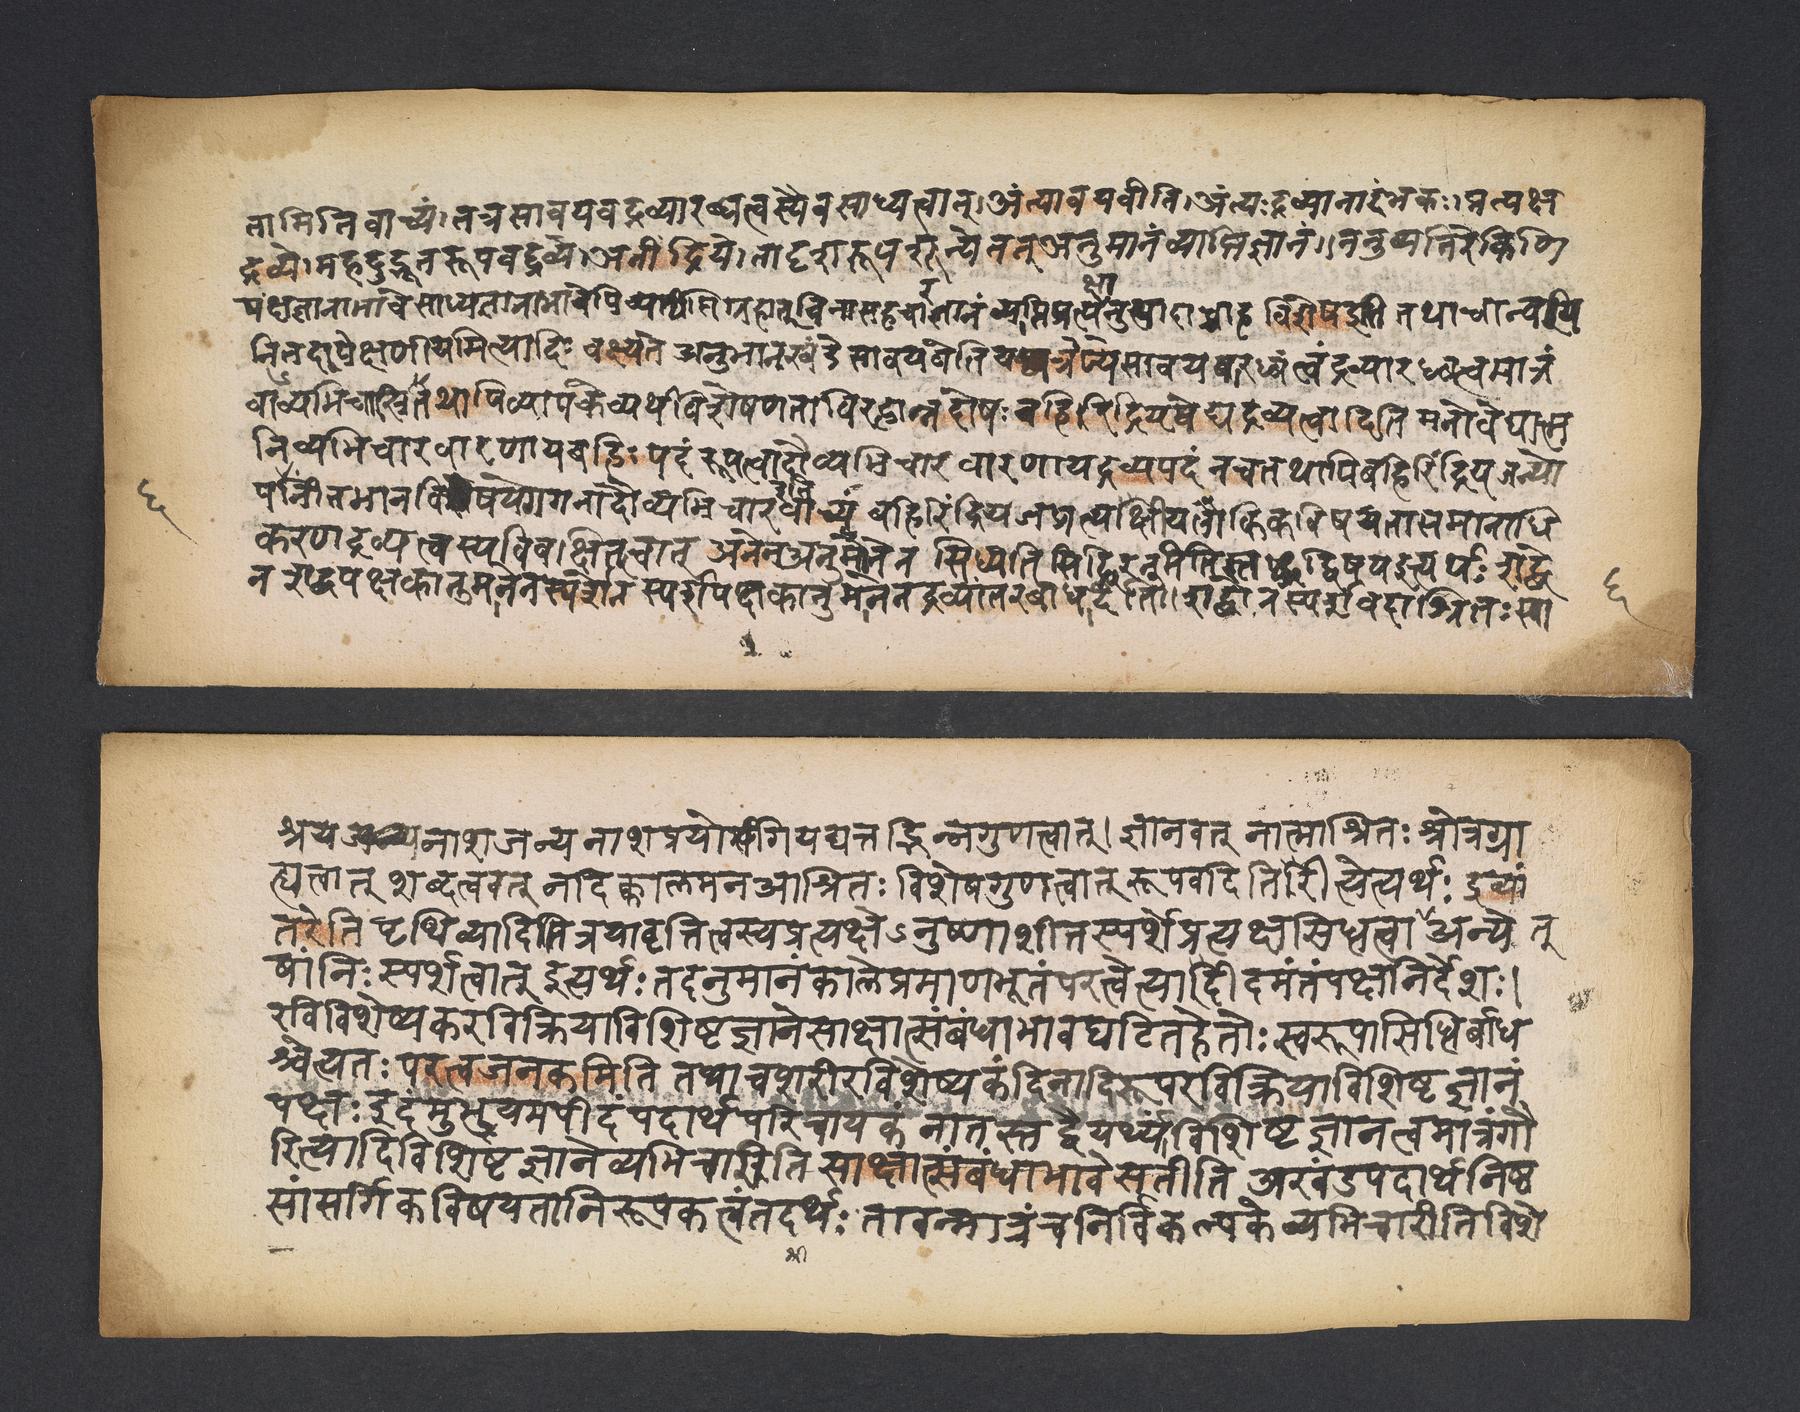 तामिति वाच्यं। तत्र सावयवद्रव्यारब्धत्वस्यैव साध्यत्वात्। अंत्यावयवीति। अंत्यः द्रव्यानारंभकः। प्रत्यक्ष
द्रव्ये। महदुद्भूतरूपवद्द्रव्ये। अतींद्रिये। तादृशरूपशून्ये ननु अनुमानं व्याप्तिज्ञानं।। ननु व्यतिरेकिणि
पक्षज्ञानाभावे साध्यज्ञानाभावेपि विना सहचारज्ञानं विशेष इति तथाचान्वयि
नि तदापेक्षणीयमित्यादिः वक्ष्यते अनुमानखंडे सावयवेति सावयवारब्धत्वं द्रव्यारब्धत्वमात्रं
वा व्यभिचारि तथापि व्यापके व्यर्थविशेषणताविरहान्न दोषः बहिरिंद्रियवेद्यद्रव्यत्वादिति मनोवेद्यात्म
नि व्यभिचारवारणाय बहिः पदं रूपत्वादौ व्यभिचारवारणाय द्रव्यपदं न च तथापि बहिरिंद्रियजन्यो
पनीतभानविषये गगनादौ व्यभिचार इति वाच्यं बहिरिंद्रियजप्रत्यक्षीयलौकिकविषयतासमानाधि
करणद्रव्यत्वस्य विवक्षितत्वात् अनेन अनुमानेन सिध्यति सिद्धिरनुमितिस्तद्विषय इत्यर्थः शब्दे
न शब्दपक्षकानुमानेन स्पर्शेन स्पर्शपक्षकानुमानेन द्रव्यांतरबाध शब्दो न स्पर्शवदाश्रितः स्वा
६
६
श्रयनाशजन्यनाशप्रतियोगि यद्यत्तद्भिन्नगुणत्वात्। ज्ञानवत् नात्माश्रितः श्रोत्रग्रा
ह्यत्वात् शब्दत्ववत् न दिक्कालमन आश्रितः विशेषगुणत्वात् रूपवदिति रीत्येत्यर्थः द्रव्यां
तरेति पृथिव्यादित्रितयावृत्तित्वस्य प्रत्यक्षे ऽनुष्णाशीतस्पर्शे प्रत्यक्षसिद्धत्वा अन्ये तु
षां निः स्पर्शत्वात् इत्यर्थः तदनुमानं काले प्रमाणभूतं परत्वेत्यादि इदमंतं पक्षनिर्देशः।
रविविशेष्यकरविक्रियाविशिष्टज्ञाने साक्षात्संबंधाभावघटितहेतोः स्वरूपासिद्धिर्बाध
श्चेत्यतः परत्वजनकमिति तथाच शरीरविशेष्यकं दिनादिरूपरविक्रियाविशिष्टज्ञानं
पक्षः इदमुभयमपीदं पदार्थपरिचायकं नातस्तद्वैयर्थ्यं विशिष्टज्ञानत्वमात्रं गौ
रित्यादिविशिष्टज्ञाने व्यभिचारीति साक्षात्संबंधाभावे सतीति अखंडपदार्थनिष्ठ
सांसर्गिकविषयतानिरूपकत्वं तदर्थः तावन्मात्रं च निर्विकल्पके व्यभिचारीति विशे
श्री